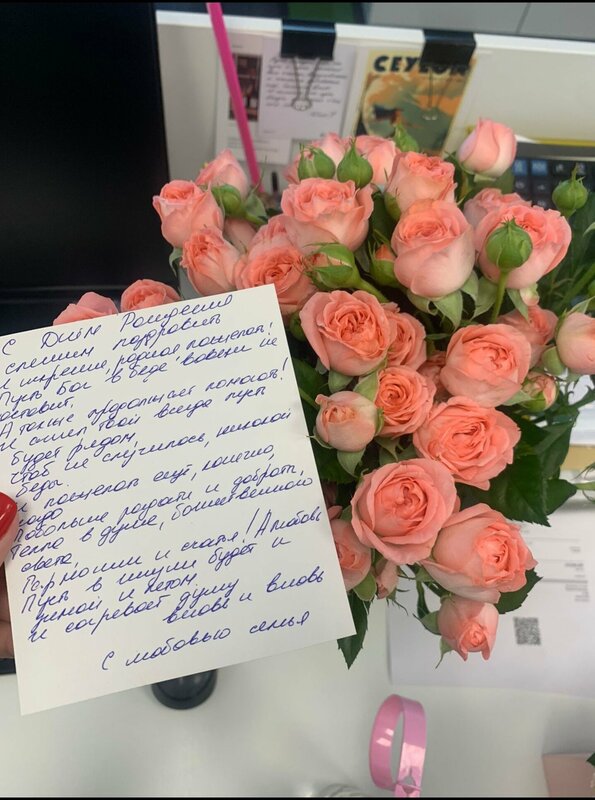 CEYLON
С Днём Рождения
спешим поздравить
и искренне, родная пожелать!
Пусть Бог в беде вовеки не
оставит,
А также продолжает помогать!
И ангел твой всегда пусть
будет рядом,
Чтоб не случилось, никакой
беды.
И пожелать ещё, конечно,
надо
Побольше радости и доброты,
Тепла в душе, божественного
света,
Гармонии и счастья! А любовь
Пусть в жизни будет и
зимой и летом
И согревает душу
вновь и вновь
С любовью семья